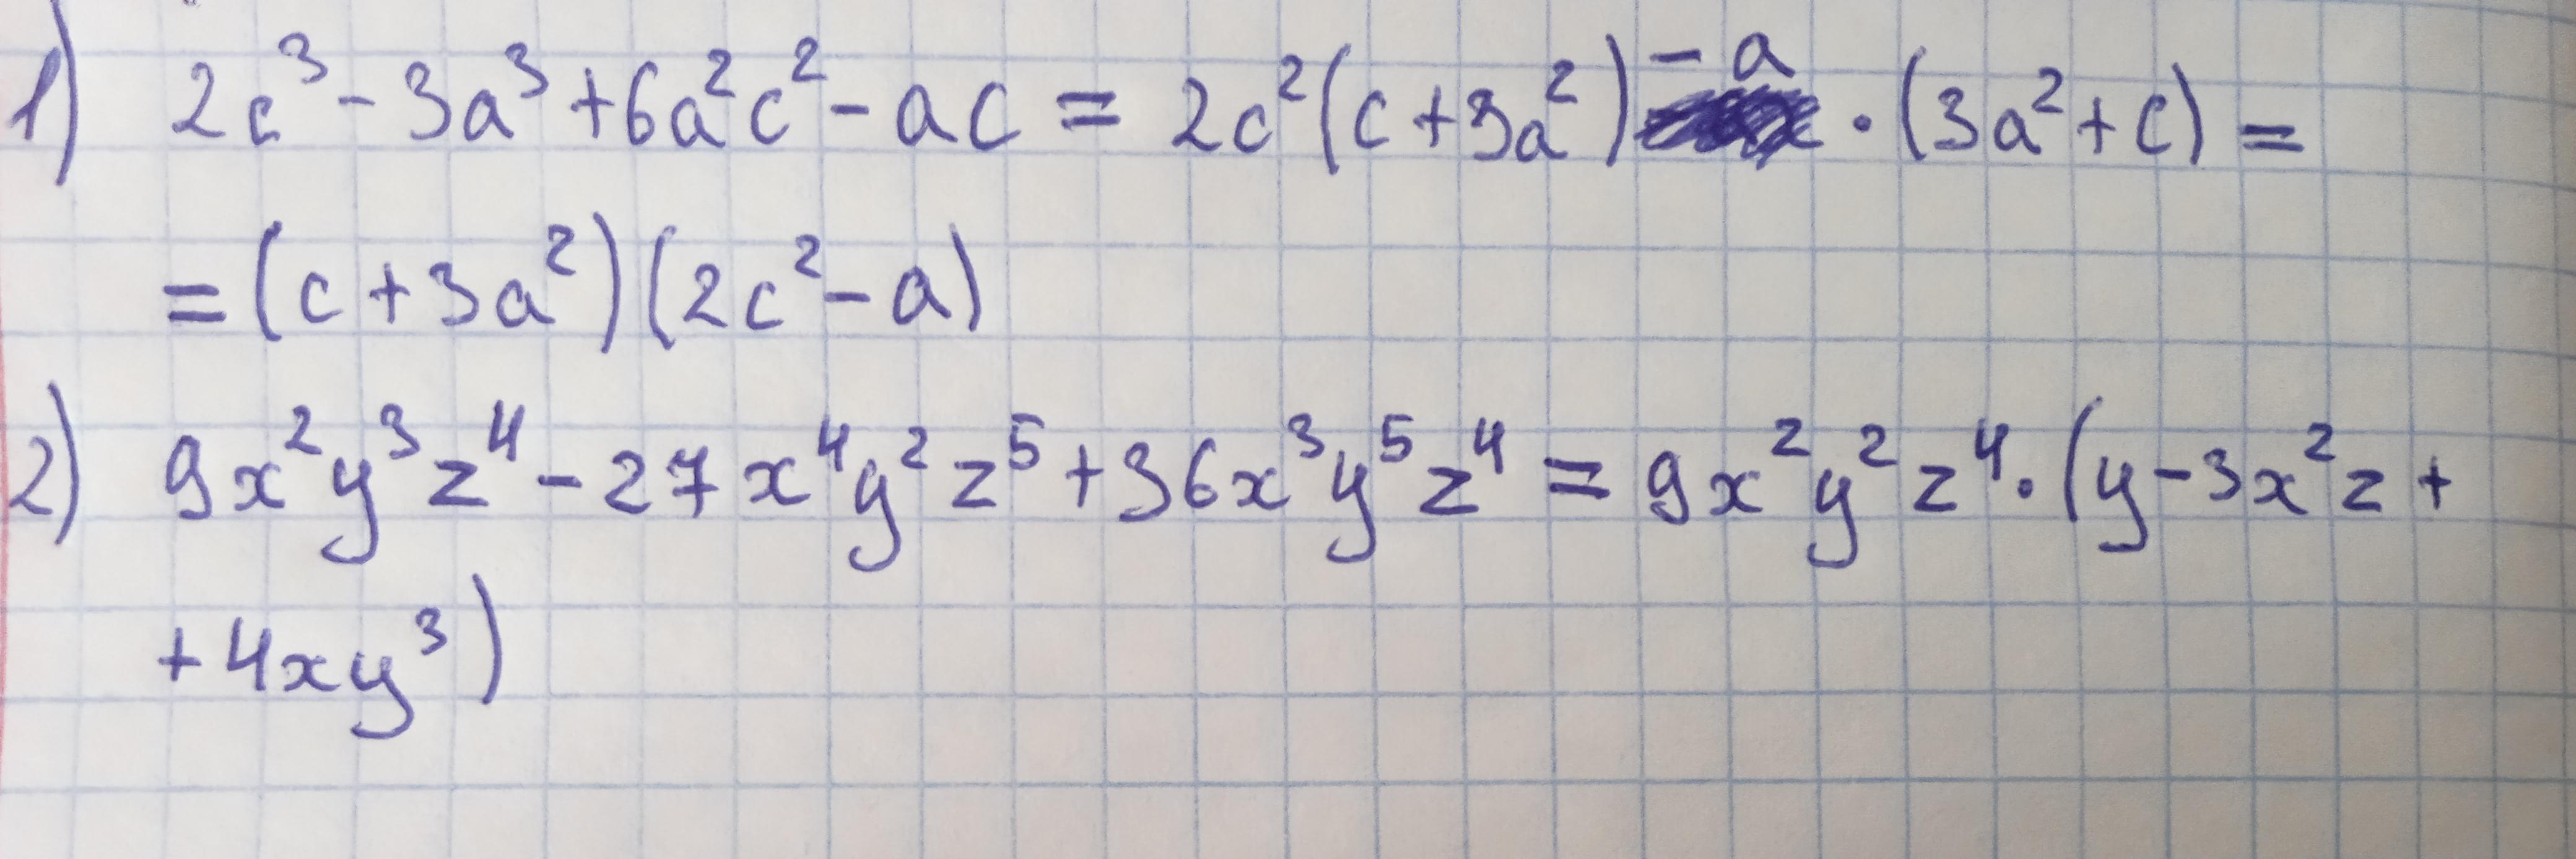 1) 2c³ - 3a³ + 6a²c² - ac = 2c²(c + 3a²) - a · (3a² + c) =
= (c + 3a²)(2c² - a)
2) 9x²y³z⁴ - 27x⁴y²z⁵ + 36x³y⁵z⁴ = 9x²y²z⁴ · (y - 3x²z +
+ 4xy³)